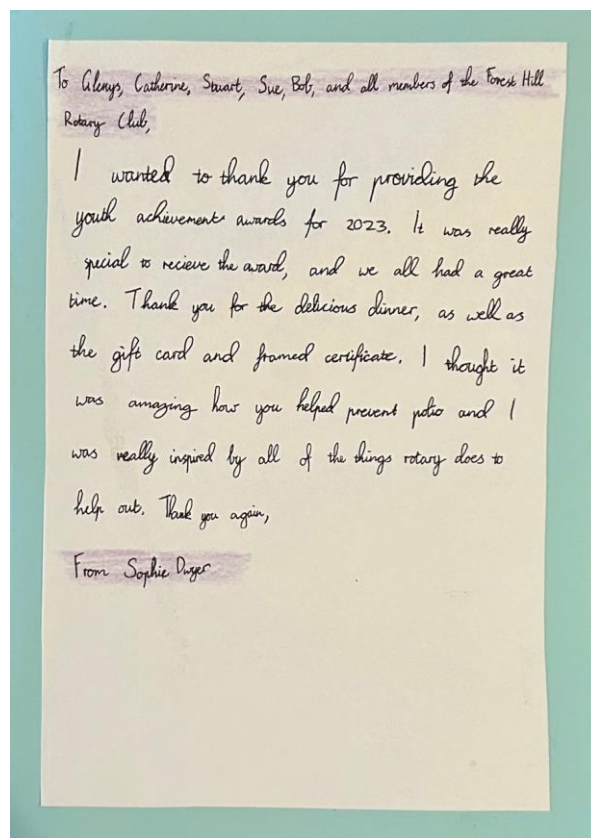 To Glenys, Catherine, Stuart, Sue, Bob, and all members of the Forest Hill
Rotary Club,
I wanted to thank you for providing the
youth achievement awards for 2023. It was really
special to recieve the award, and we all had a great
time. Thank you for the delicious dinner, as well as
the gift card and framed certificate. I thought it
was amazing how you helped prevent polio and I
was really inspired by all of the things rotary does to
help out. Thank you again,
From Sophie Dwyer